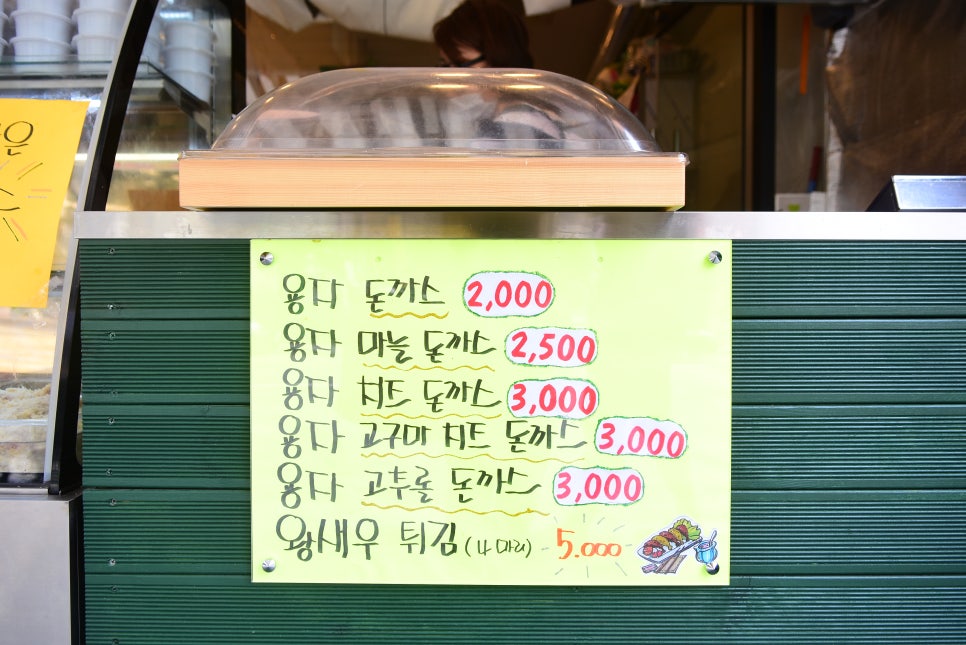 은
용다 돈까스 2,000
용다 마늘 돈까스 2,500
용다 치즈 돈까스 3,000
용다 고구마 치즈 돈까스 3,000
용다 고추롤 돈까스 3,000
왕새우 튀김 (4마리) 5.000